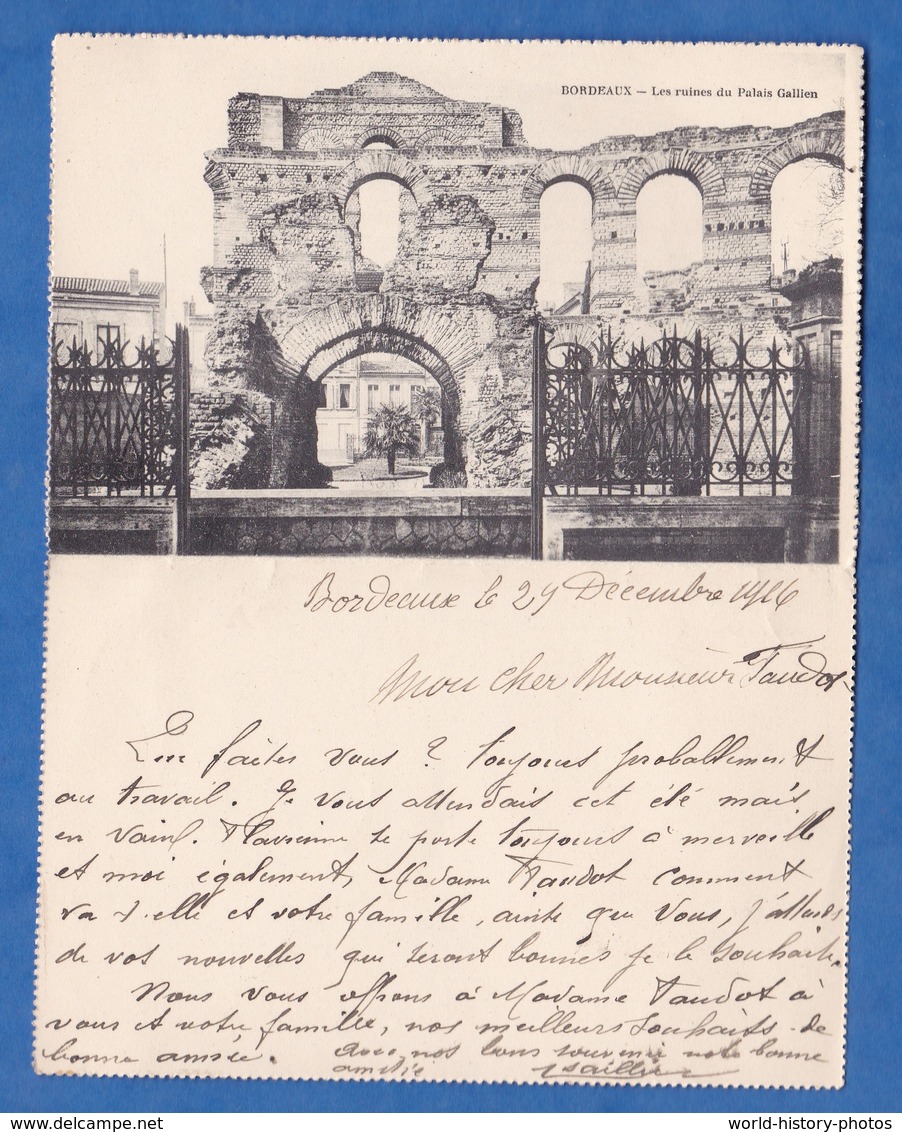 BORDEAUX — Les ruines du Palais Gallien
Bordeaux le 29 Décembre 1916
Mon cher Monsieur Taudot
faites vous ? toujours probablement
au travail. Je vous attendais cet été mais
en vain. se porte toujours à merveille
et moi également, Madame Taudot comment
va t'elle et votre famille, ainsi que vous, j'attends
de vos nouvelles qui seront bonnes je le souhaite.
Nous vous offrons à Madame Taudot à
vous et votre famille, nos meilleurs souhaits de
bonne année. Avec nos bons souvenir notre bonne
amitié
world-history-photos
delcampe.net
world-history-photos